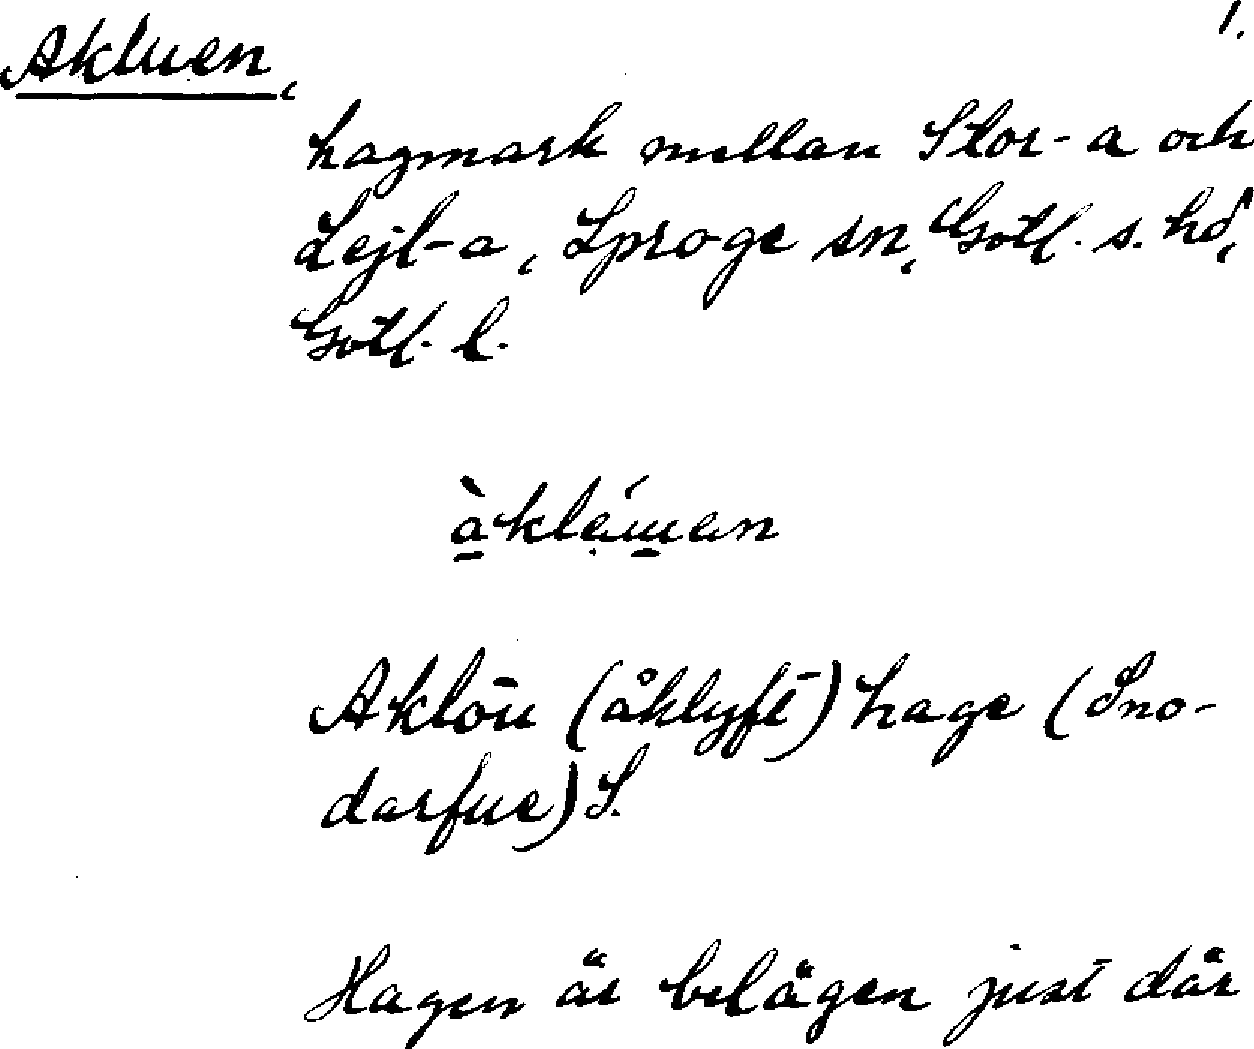 1.
Akluen,
hagmark mellan Stor-a och
Lejl-a, Sproge sn, Gotl. s. hd,
Gotl. l.
àkláuen
Aklōu (åklyft) hage (Sno-
darfue) S.
Hagen är belägen just där